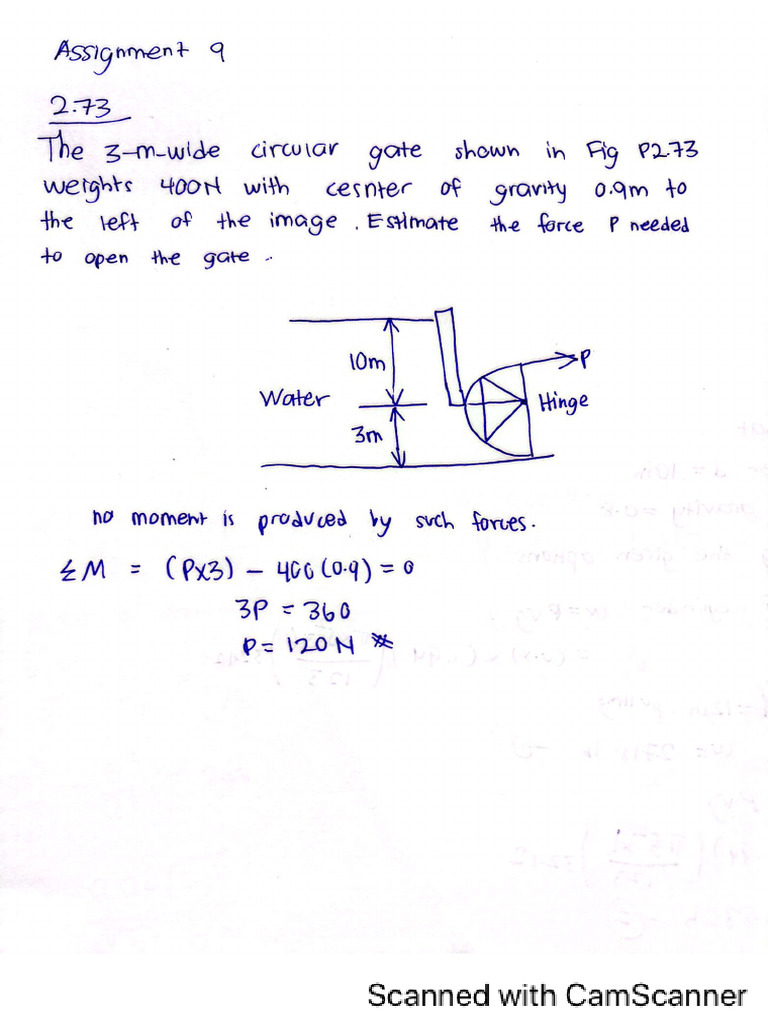 Assignment 9
2.73
The 3-m-wide circular gate shown in Fig P2.73
weights 400N with cesnter of gravity 0.9m to
the left of the image. Estimate the force P needed
to open the gate.
10m
P
Water
Hinge
3m
no moment is produced by such forces.
ΣM = (Px3) - 400(0.9) = 0
3P = 360
P = 120N
Scanned with CamScanner